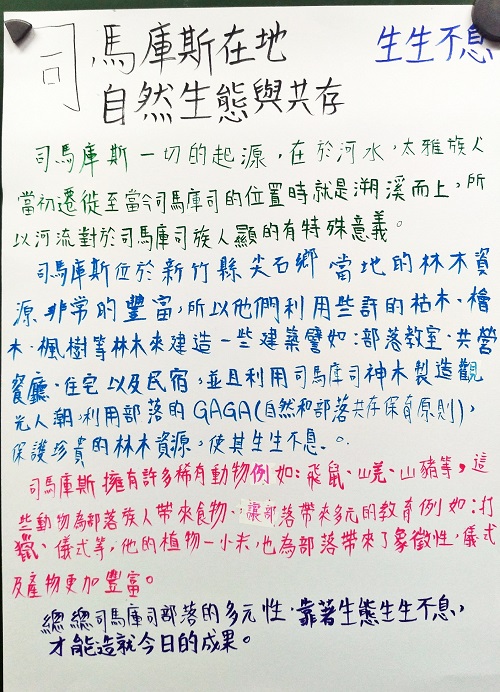 司馬庫斯在地 生生不息
自然生態與共存
司馬庫斯一切的起源,在於河水,太雅族人
當初遷徙至當今司馬庫司的位置時就是溯溪而上,所
以河流對於司馬庫司族人顯的有特殊意義。
司馬庫斯位於新竹縣尖石鄉當地的林木資
源非常的豐富,所以他們利用些許的枯木、檜
木、楓樹等林木來建造一些建築譬如:部落教室、共營
餐廳、住宅以及民宿,並且利用司馬庫司神木製造觀
光人潮,利用部落的GAGA(自然和部落共存保育原則),
保護珍貴的林木資源,使其生生不息。
司馬庫斯擁有許多稀有動物例如:飛鼠、山羌、山豬等,這
些動物為部落族人帶來食物、讓部落帶來多元的教育例如:打
獵、儀式等,他的植物一小米,也為部落帶來了象徵性,儀式
及產物更加豐富。
總總司馬庫司部落的多元性,靠著生態生生不息,
才能造就今日的成果。